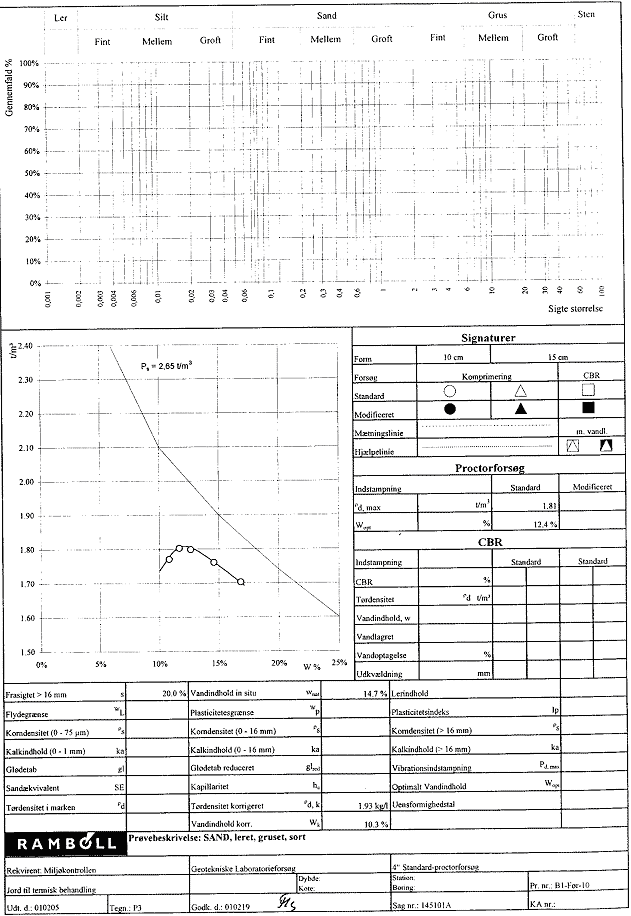 Ler Silt Sand Grus Sten
Fint Mellem Groft Fint Mellem Groft Fint Mellem Groft
Gennemfald %
100%
90%
80%
70%
60%
50%
40%
30%
20%
10%
0%
0,001 0,002 0,003 0,004 0,006 0,01 0,02 0,03 0,04 0,06 0,1 0,2 0,3 0,4 0,6 1 2 3 4 6 10 20 30 40 60 100
Sigte størrelse
t/m³
2.40
2.30
2.20
2.10
2.00
1.90
1.80
1.70
1.60
1.50
Ps = 2,65 t/m³
0% 5% 10% 15% 20% W % 25%
Signaturer
Form 10 cm 15 cm
Forsøg Komprimering CBR
Standard
Modificeret
Mæmingslinie m. vandl.
Hjælpelinie
Proctorforsøg
Indstampning Standard Modificeret
ρd, max t/m³ 1.81
Wopt % 12.4 %
CBR
Indstampning Standard Standard
CBR %
Tørdensitet ρd t/m³
Vandindhold, w
Vandlagret
Vandoptagelse %
Udkvældning mm
Frasigtet > 16 mm s 20.0 % Vandindhold in situ wnat 14.7 % Lerindhold
Flydegrænse wL Plasticitetsgrænse wp Plasticitetsindeks Ip
Korndensitet (0 - 75 µm) ρs Korndensitet (0 - 16 mm) ρs Korndensitet (> 16 mm) ρs
Kalkindhold (0 - 1 mm) ka Kalkindhold (0 - 16 mm) ka Kalkindhold (> 16 mm) ka
Glødetab gl Glødetab reduceret glred Vibrationsindstampning Pd, max
Sandækvivalent SE Kapillaritet hc Optimalt Vandindhold Wopt
Tørdensitet i marken ρd Tørdensitet korrigeret ρd, k 1.93 kg/l Uensformighedstal
Vandindhold korr. Wk 10.3 %
RAMBØLL Prøvebeskrivelse: SAND, leret, gruset, sort
Rekvirent: Miljøkontrollen Geotekniske Laboratorieforsøg 4" Standard-proctorforsøg
Jord til termisk behandling Dybde: Kote: Station: Boring: Pr. nr.: B1-Før-10
Udt. d.: 010205 Tegn.: P3 Godk. d.: 010219 Sag nr.: 145101A KA nr.: